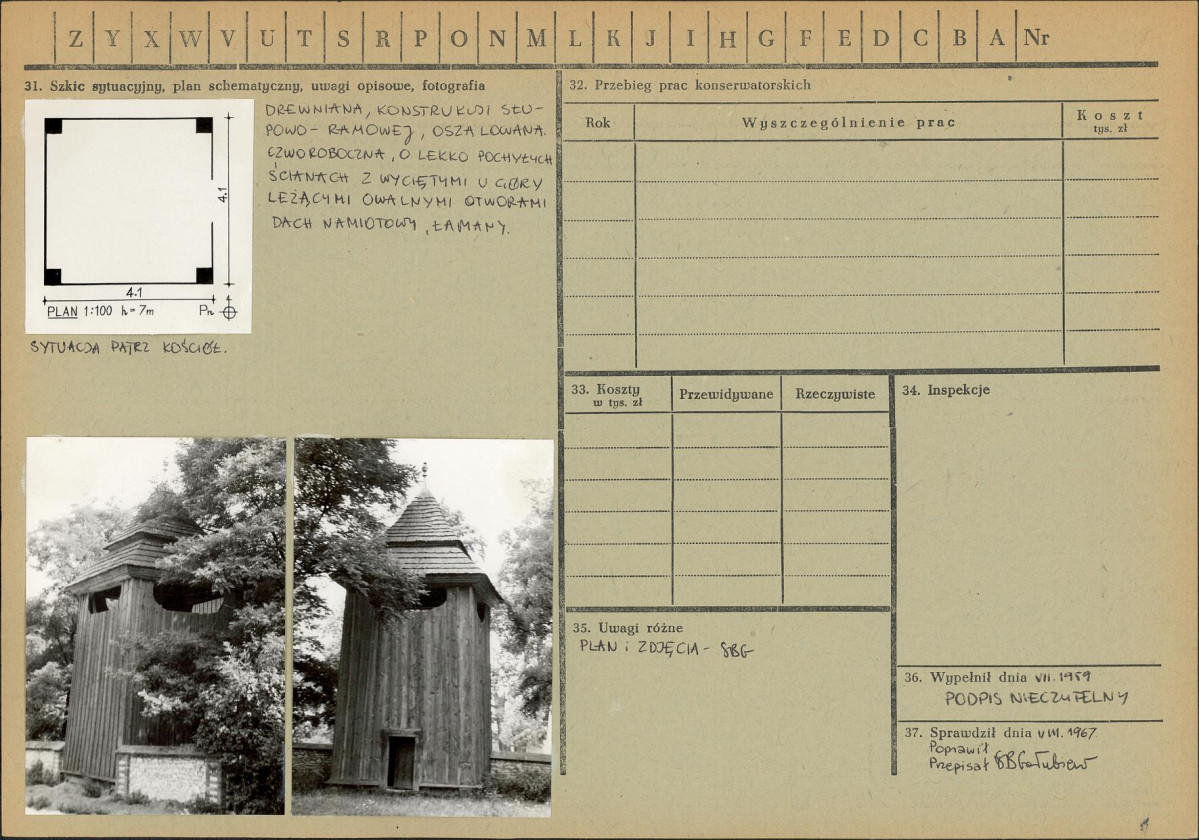 Z Y X W V U T S R P O N M L K J I H G F E D C B A Nr
31. Szkic sytuacyjny, plan schematyczny, uwagi opisowe, fotografia
4.1
4.1
PLAN 1:100 h=7m Pn
SYTUACJA PATRZ KOŚCIÓŁ.
DREWNIANA, KONSTRUKCJI SŁU-
POWO-RAMOWEJ, OSZALOWANA.
CZWOROBOCZNA, O LEKKO POCHYŁYCH
ŚCIANACH Z WYCIĘTYMI U GÓRY
LEŻĄCYMI OWALNYMI OTWORAMI
DACH NAMIOTOWY, ŁAMANY.
32. Przebieg prac konserwatorskich
Rok Wyszczególnienie prac Koszt
tys. zł
33. Koszty
w tys. zł
Przewidywane Rzeczywiste
34. Inspekcje
35. Uwagi różne
PLAN i ZDJĘCIA - SBG
36. Wypełnił dnia VII.1959
PODPIS NIECZYTELNY
37. Sprawdził dnia VIII.1967
Poprawił
Przepisał